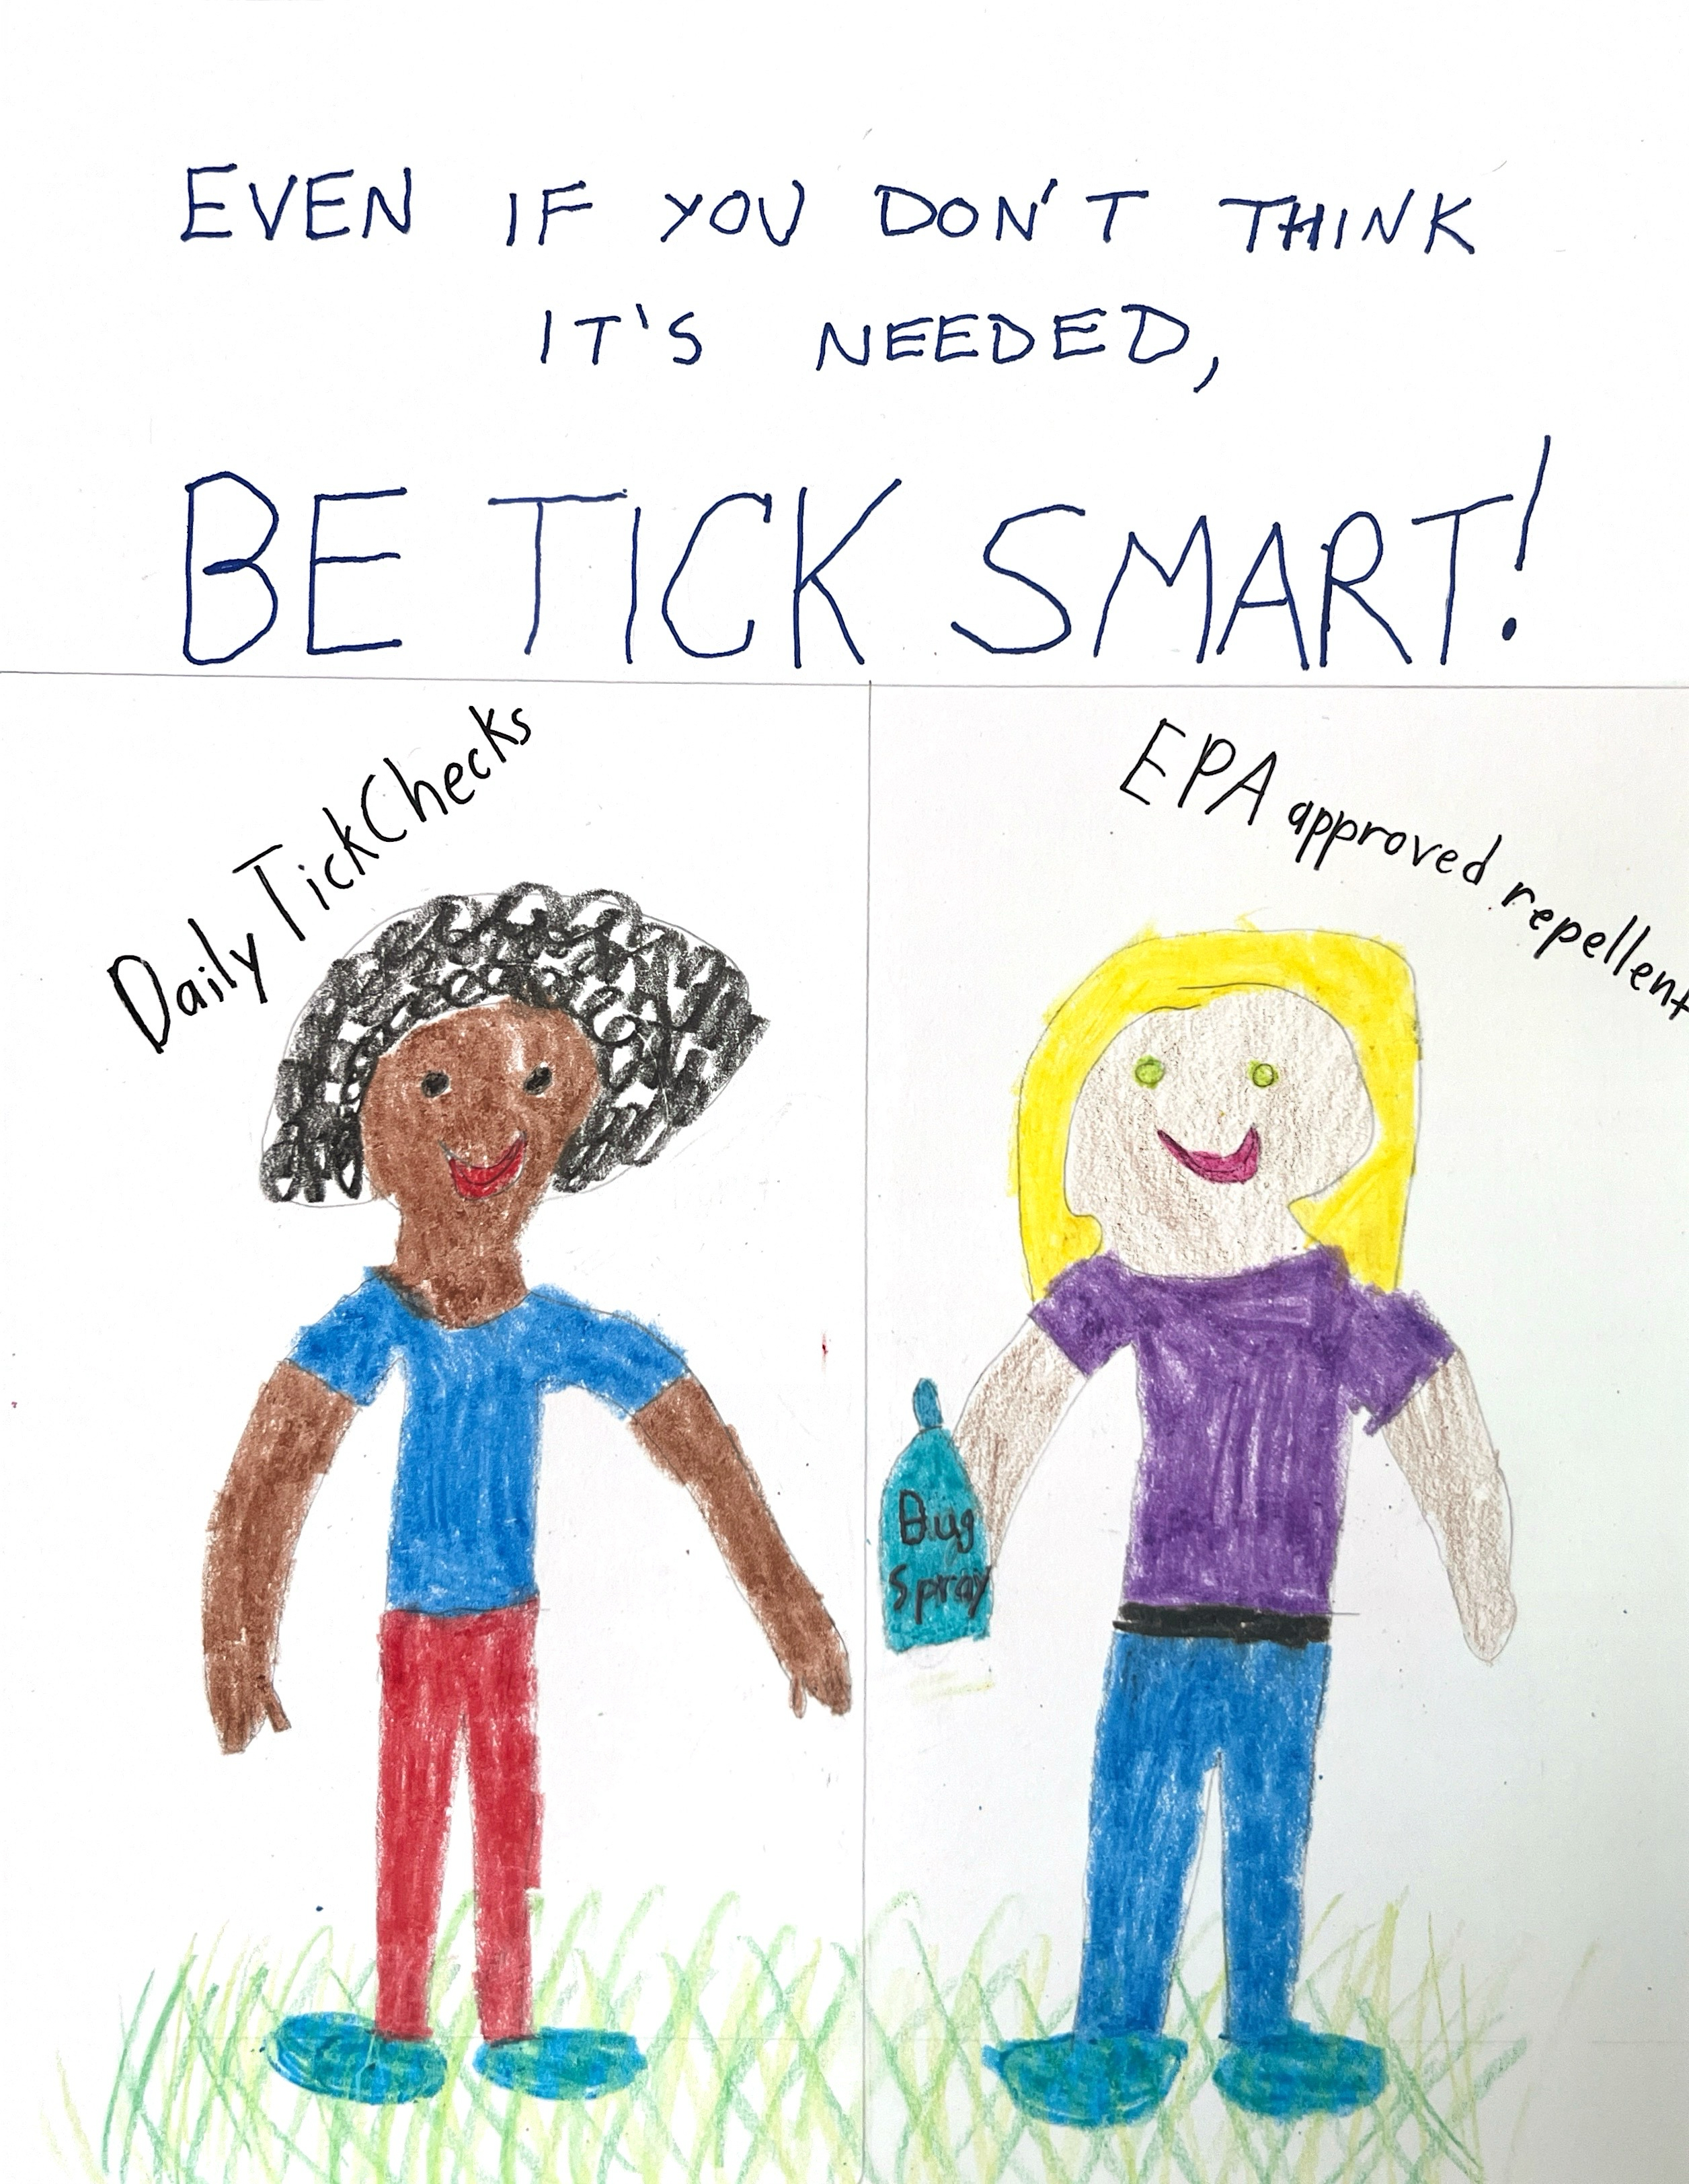 EVEN IF YOU DON'T THINK
IT'S NEEDED,
BE TICK SMART!
Daily Tick Checks
EPA approved repellent
Bug
Spray